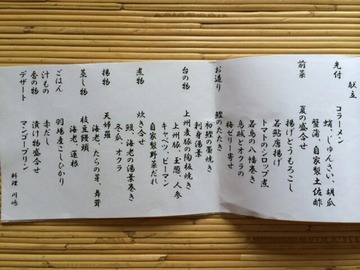 献立
先付
コラーメン
蛸、じゅんさい、胡瓜
蟹蒲、自家製土佐酢
前菜
夏の盛合せ
揚げとうもろこし
若鮎唐揚げ
トマトのシロップ煮
若鳥の八幡巻
烏賊とオクラの
梅ゼリー寄せ
お造り
鰹のたたき
初鰹の藁焼き
刺身湯葉
台の物
上州麦豚の陶板焼き
上州豚、玉葱、人参
キャベツ、ピーマン
自家製野菜だれ
煮物
炊き合せ
鶏、海老の湯葉巻き
冬瓜、オクラ
揚物
天婦羅
海老、たらの芽、舞茸
蒸し物
枝豆饅頭
海老、蓮根
ごはん
羽場産こしひかり
汁もの
赤だし
香の物
漬け物盛合せ
デザート
マンゴープリン
料理 川嶋